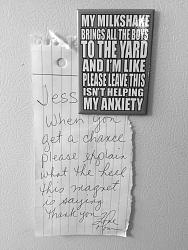 MY MILKSHAKE
BRINGS ALL THE BOYS
TO THE YARD
AND I'M LIKE
PLEASE LEAVE THIS
ISN'T HELPING
MY ANXIETY
Jess
When you
get a chance
please explain
what the hell
this magnet
is saying.
Thank you
Love
Mom